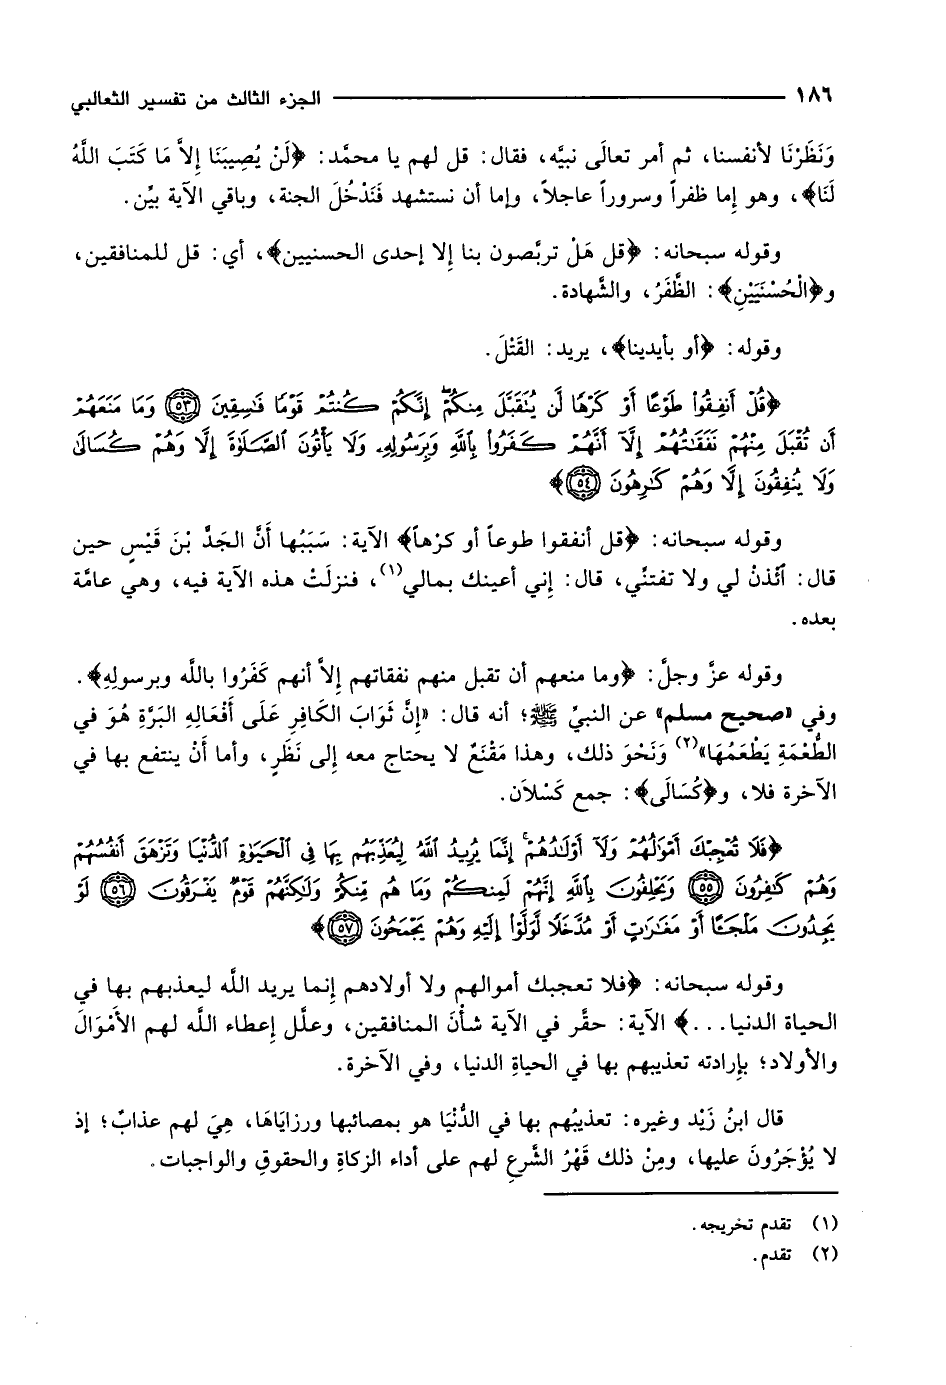 ١٨٦ ـــــــــــــــــــــــــــــــ الجزء الثالث من تفسير الثعالبي
وَنَظَرْنَا لأنفسنا، ثم أمر تعالَى نبيَّه، فقال: قل لهم يا محمَّد: ﴿لَنْ يُصِيبَنَا إِلاَّ مَا كَتَبَ اللَّهُ
لَنَا﴾، وهو إِما ظفراً وسروراً عاجلاً، وإما أن نستشهد فَنَدْخُلَ الجنة، وباقي الآية بيِّن.
وقوله سبحانه: ﴿قل هَلْ تربَّصون بنا إِلا إحدى الحسنيين﴾، أي: قل للمنافقين،
و﴿الْحُسْنَيَيْنِ﴾: الظَّفَرُ، والشَّهادة.
وقوله: ﴿أو بأيدينا﴾، يريد: القَتْلَ.
﴿قُلْ أَنفِقُوا۟ طَوْعًا أَوْ كَرْهًا لَّن يُتَقَبَّلَ مِنكُمْ ۖ إِنَّكُمْ كُنتُمْ قَوْمًا فَٰسِقِينَ ٥٣ وَمَا مَنَعَهُمْ
أَن تُقْبَلَ مِنْهُمْ نَفَقَٰتُهُمْ إِلَّآ أَنَّهُمْ كَفَرُوا۟ بِٱللَّهِ وَبِرَسُولِهِۦ وَلَا يَأْتُونَ ٱلصَّلَوٰةَ إِلَّا وَهُمْ كُسَالَىٰ
وَلَا يُنفِقُونَ إِلَّا وَهُمْ كَٰرِهُونَ ٥٤﴾
وقوله سبحانه: ﴿قل أنفقوا طوعاً أو كرْهاً﴾ الآية: سَبَبُها أَنَّ الجَدَّ بْنَ قَيْسٍ حين
قال: ٱئْذنْ لي ولا تفتنِّي، قال: إِني أعينك بمالي(١)، فنزلَتْ هذه الآية فيه، وهي عامَّة
بعده.
وقوله عزَّ وجلَّ: ﴿وما منعهم أن تقبل منهم نفقاتهم إِلاَّ أنهم كَفَرُوا باللَّه وبرسولِهِ﴾.
وفي «صحيح مسلم» عن النبيِّ ﷺ؛ أنه قال: «إِنَّ ثَوَابَ الكَافِرِ عَلَى أَفْعَالِهِ البَرَّةِ هُوَ في
الطُّعْمَةِ يَطْعَمُهَا»(٢) وَنَحْوَ ذلك، وهذا مَقْنَعٌ لا يحتاج معه إِلى نَظَرٍ، وأما أَنْ ينتفع بها في
الآخرة فلا، و﴿كُسَالَى﴾: جمع كَسْلاَن.
﴿فَلَا تُعْجِبْكَ أَمْوَٰلُهُمْ وَلَآ أَوْلَٰدُهُمْ ۚ إِنَّمَا يُرِيدُ ٱللَّهُ لِيُعَذِّبَهُم بِهَا فِى ٱلْحَيَوٰةِ ٱلدُّنْيَا وَتَزْهَقَ أَنفُسُهُمْ
وَهُمْ كَٰفِرُونَ ٥٥ وَيَحْلِفُونَ بِٱللَّهِ إِنَّهُمْ لَمِنكُمْ وَمَا هُم مِّنكُمْ وَلَٰكِنَّهُمْ قَوْمٌ يَفْرَقُونَ ٥٦ لَوْ
يَجِدُونَ مَلْجَـًٔا أَوْ مَغَٰرَٰتٍ أَوْ مُدَّخَلًا لَّوَلَّوْا۟ إِلَيْهِ وَهُمْ يَجْمَحُونَ ٥٧﴾
وقوله سبحانه: ﴿فلا تعجبك أموالهم ولا أولادهم إِنما يريد اللَّه ليعذبهم بها في
الحياة الدنيا...﴾ الآية: حقَّر في الآية شأْنَ المنافقين، وعلَّل إِعطاء اللَّه لهم الأَمْوَالَ
والأولاد؛ بإِرادته تعذيبهم بها في الحياةِ الدنيا، وفي الآخرة.
قال ابنُ زَيْد وغيره: تعذيبُهم بها في الدُّنْيَا هو بمصائبها ورزاياهَا، هِيَ لهم عذابٌ؛ إذ
لا يُؤْجَرُونَ عليها، ومِنْ ذلك قَهْرُ الشَّرعِ لهم على أداء الزكاةِ والحقوقِ والواجبات.
(١) تقدم تخريجه.
(٢) تقدم.